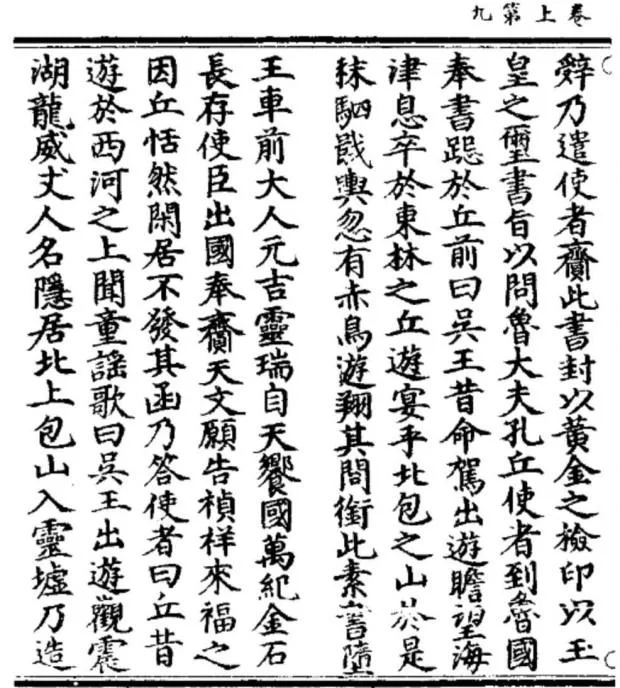 卷上第九
辤乃遣使者齎此書封以黃金之檢印以玉
皇之璽書旨以問魯大夫孔丘使者到魯國
奉書跽於丘前曰吳王昔命駕出遊瞻望海
津息卒於東林之丘遊宴乎北包之山於是
秣駟戢輿忽有赤鳥遊翔其間銜此素書墮
王車前大人元吉靈瑞自天饗國萬紀金石
長存使臣出國奉齎天文願告禎祥來福之
因丘恬然閑居不發其函乃答使者曰丘昔
遊於西河之上聞童謠歌曰吳王出遊觀震
湖龍威丈人名隱居北上包山入靈墟乃造